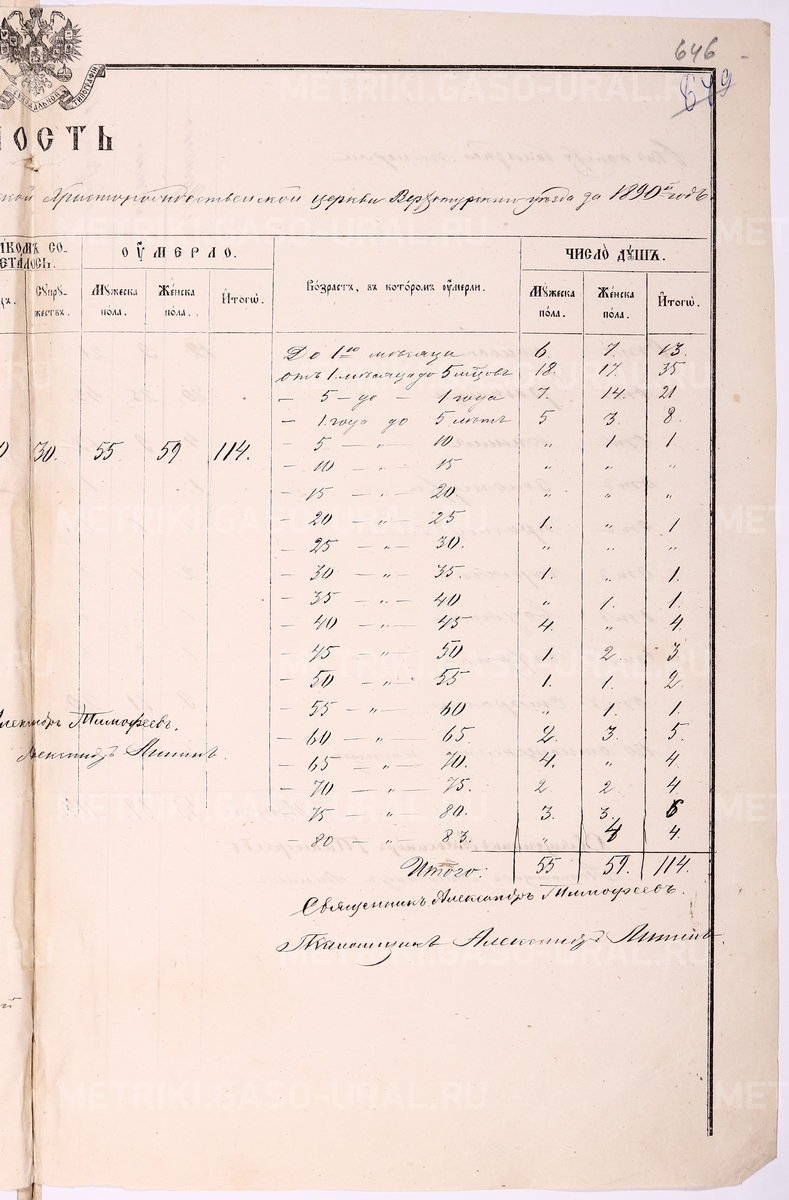 646
649
СИНОДАЛЬНОЙ ТИПОГРАФІИ
ОСТЬ
ской Христорождественской церкви Верхотурскаго уѣзда за 1890й годъ.
ІКОМЪ СО-
ЕТАЛОСЬ.
ОУМЕРЛО.
Возрастъ, въ которомъ оумерли.
ЧИСЛО ДУШЪ.
СУПРУ-
жествъ.
Мужеска
пола.
Женска
пола.
Итогѡ.
Мужеска
пола.
Женска
пола.
Итогѡ.
До 1го мѣсяца 6. 7. 13.
отъ 1. мѣсяца до 5 мѣсцовъ 18. 17. 35
— 5 — до — 1 года 7. 14. 21
— 1 года до 5 лѣтъ 5 3. 8.
30. 55 59 114.
— 5 — „ — 10. „ 1. 1.
— 10 — „ — 15 „ „ „
— 15 — „ — 20 „ „ „
— 20 — „ — 25 1. „ 1
— 25 — „ — 30. „ „ „
— 30 — „ — 35. 1. „ 1.
— 35 — „ — 40 „ 1. 1.
— 40 — „ — 45 4. „ 4.
— 45 — „ — 50 1. 2. 3
— 50 — „ — 55 1. 1. 2.
— 55 — „ — 60 „ 1. 1.
— 60 — „ — 65. 2. 3. 5.
— 65 — „ — 70. 4. „ 4.
— 70 — „ — 75. 2 2. 4.
— 75 — „ — 80. 3. 3. 6
— 80 — „ — 83. „ 4 4.
Александръ Тимофеевъ.
Александръ
Итого: 55 59. 114.
Священникъ Александръ Тимофеевъ.
Псаломщикъ Александръ
METRIKI.GASO-URAL.RU